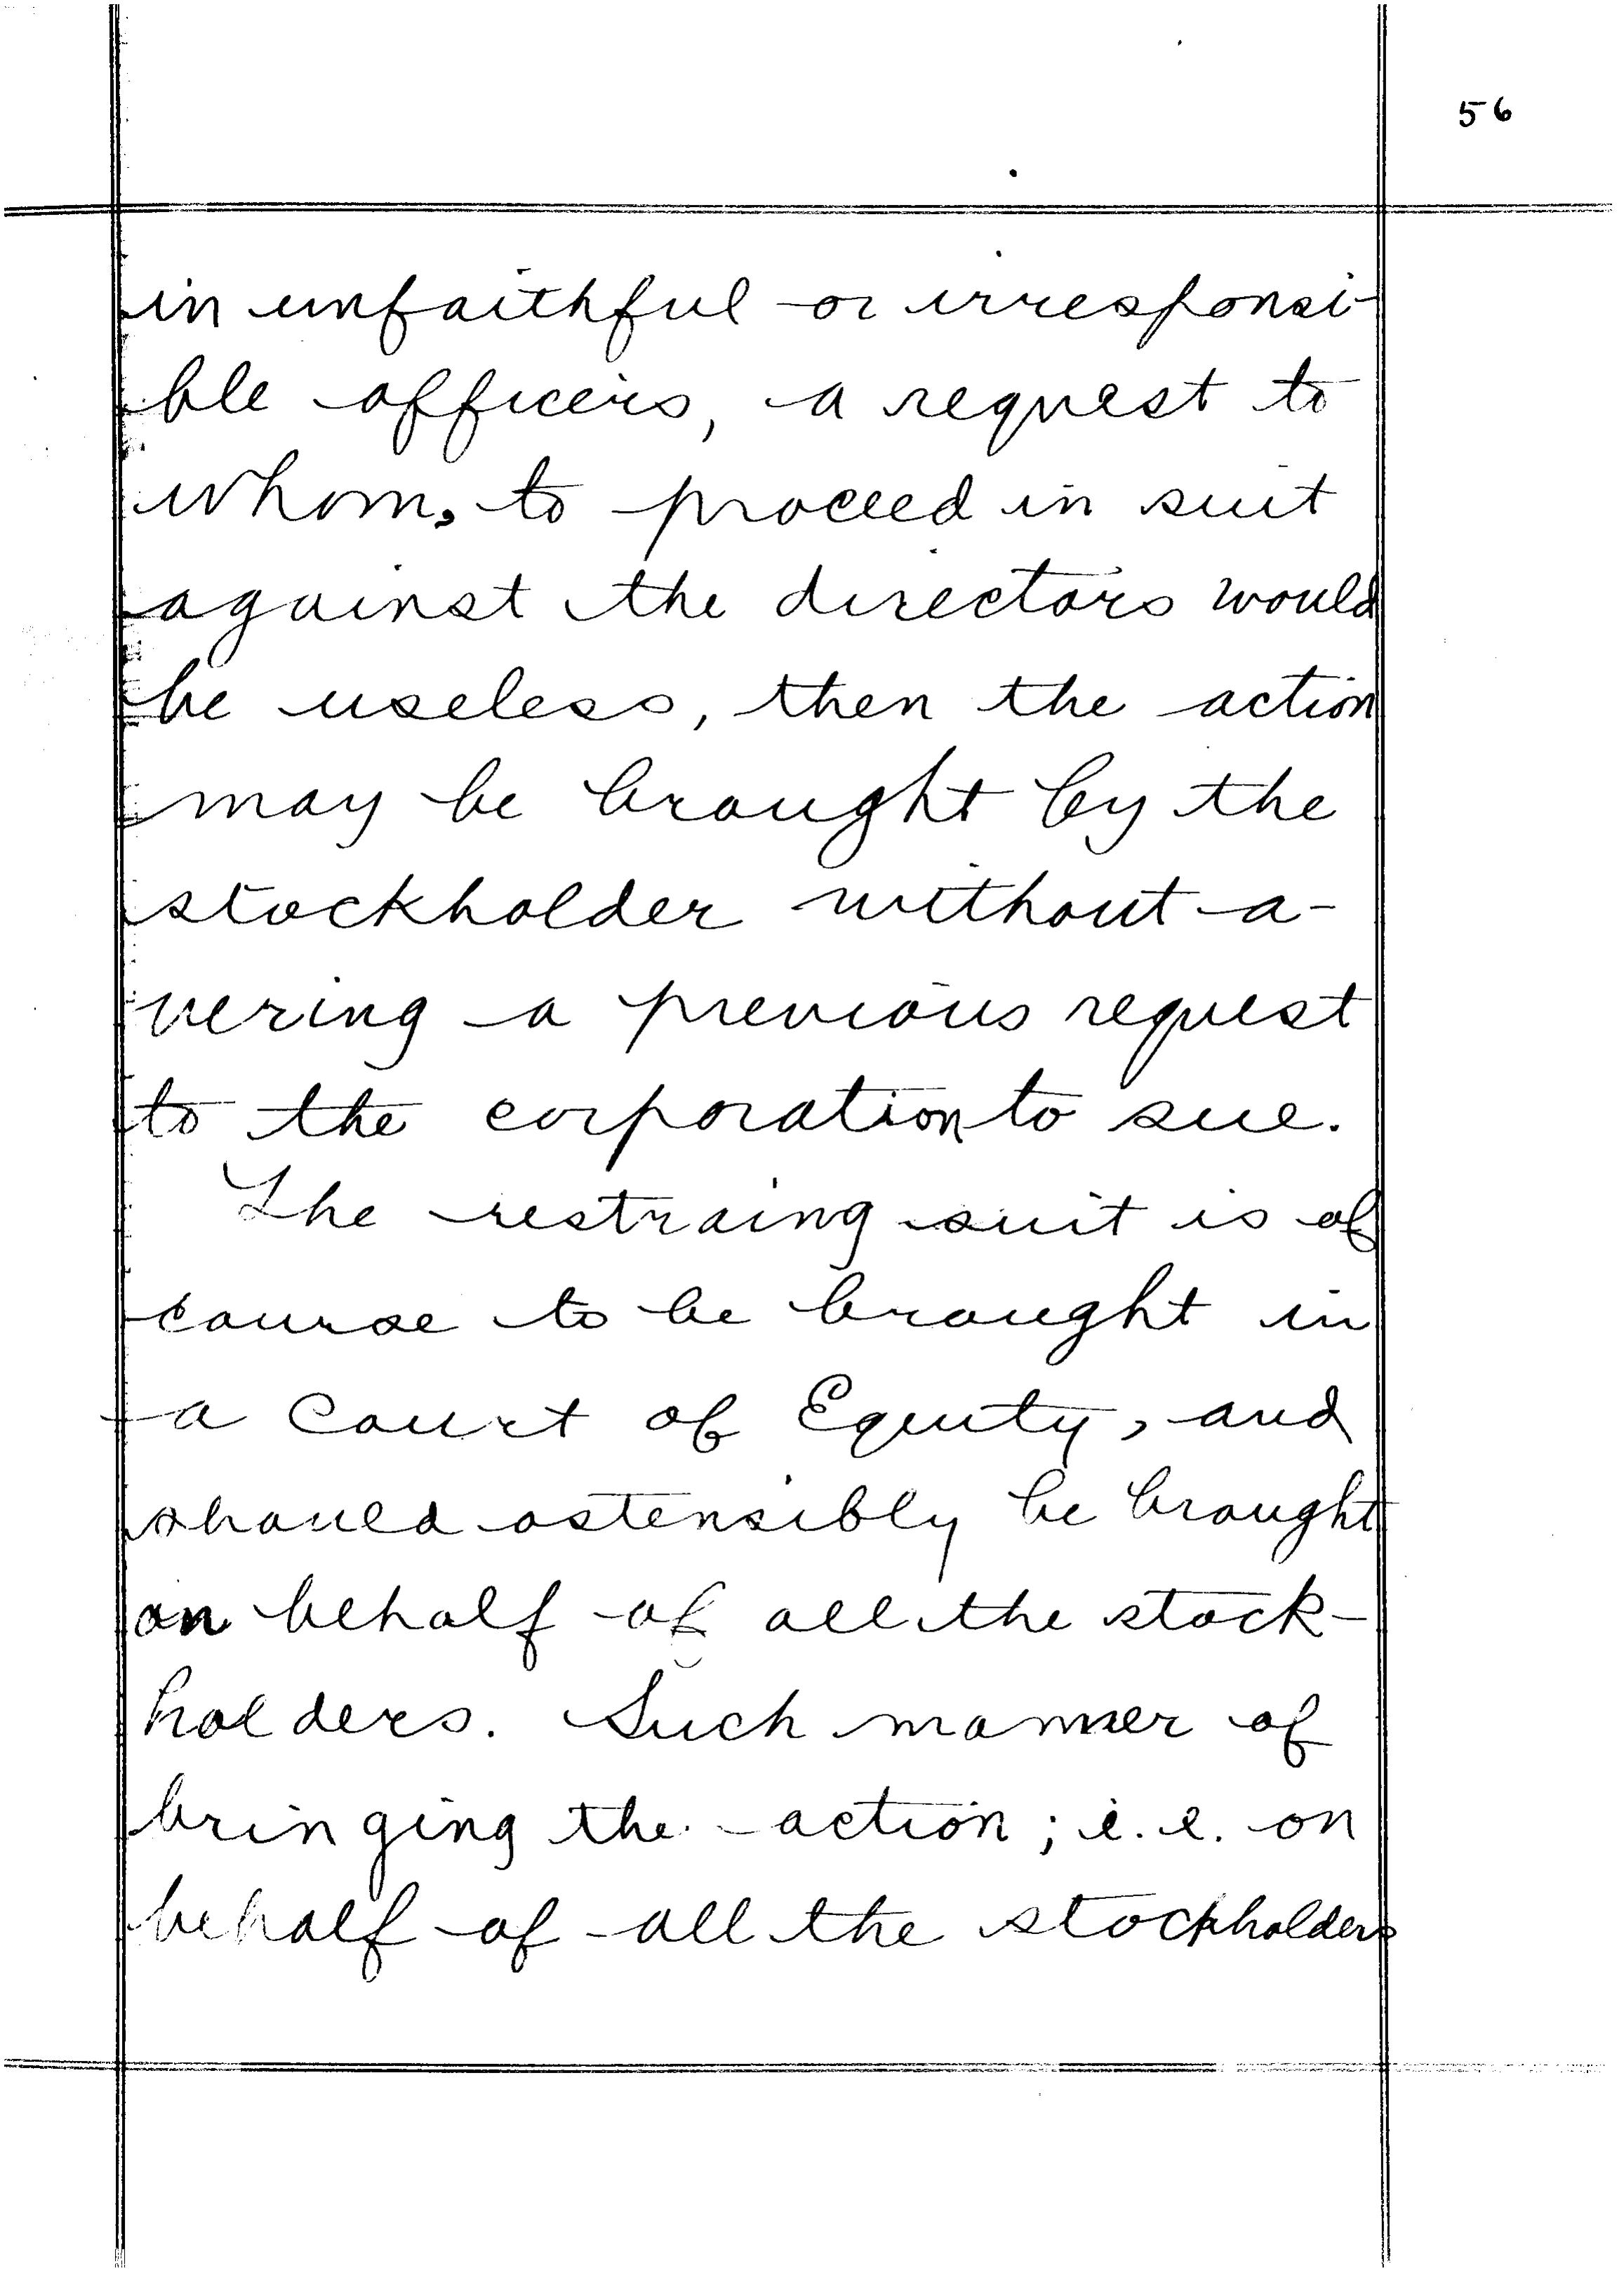 56
in unfaithful or irresponsi-
ble officers, a request to
whom, to proceed in suit
against the directors would
be useless, then the action
may be brought by the
stockholder without a-
vering a previous request
to the corporation to sue.
The restraing suit is of
course to be brought in
a Court of Equity, and
should ostensibly be brought
on behalf of all the stock-
holders. Such manner of
bringing the action; i.e. on
behalf of all the stockholders